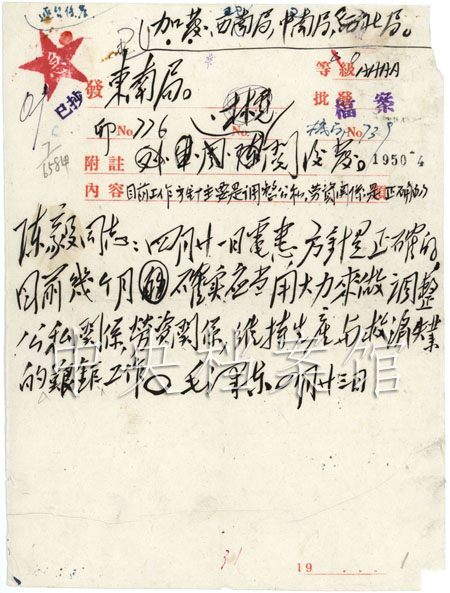 加發西南局,中南局,西北局。
等級 AAAA
發 東南局。
已抄
批
檔案
No. 776
No.
No. 739
附註
1950 4
內容 目前工作方針主要是調整公私,勞資關係是正確的
陳毅同志:四月廿一日電悉,方針是正確的
目前幾個月確實應當用大力來做調整
公私關係,勞資關係,維持生產與救濟失業
的艱鉅工作。毛澤東 廿三日
中央档案馆
19 . . . .
1